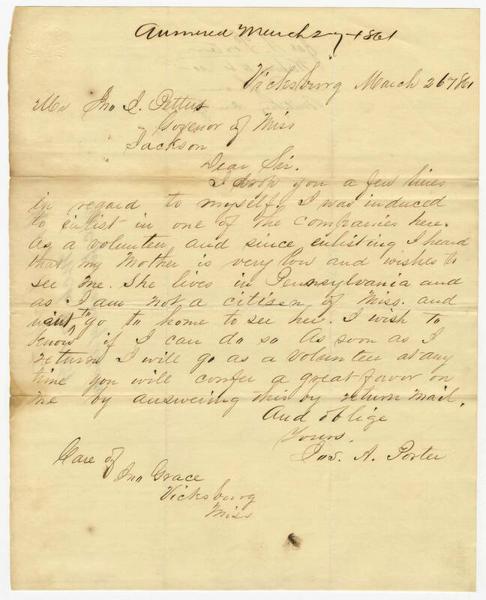 Answered March 27 1861
Vicksburg March 26 1861
Mr Jno J. Pettus
Govenor of Miss
Jackson
Dear Sir.
I drop you a few lines
in regard to myself. I was induced
to enlist in one of the companies here.
as a volunteer and since enlisting I heard
that my Mother is very low and wishes to
see me. She lives in Pennsylvania and
as I am not a citizen of Miss. and
want to go to home to see her. I wish to
know if I can do so As soon as I
return I will go as a Volunteer at any
time you will confer a great favor on
me by answering this by return mail.
And oblige
Yours.
A. Porter
Care of
Jno Grace
Vicksburg
Miss